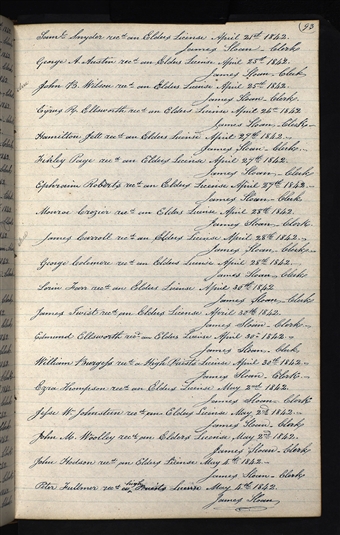 (93
Saml. Snyder rec.d an Elders License April 21st 1842.
James Sloan Clerk
George A. Austin rec.d an Elders License April 25th 1842.
James Sloan Clerk
John B. Wilson rec.d an Elders License April 25th 1842.
James Sloan Clerk
Cyrus R. Ellsworth rec.d an Elders License April 26th 1842
James Sloan Clerk
Hamilton Jett rec.d an Elders License April 27th 1842.
James Sloan Clerk
Page rec.d an Elders License April 27th 1842.
James Sloan Clerk
Ephraim Roberts rec.d an Elders License April 27th 1842.
James Sloan Clerk
Monroe Crozier rec.d an Elders License April 28th 1842.
James Sloan Clerk
James Carroll rec.d an Elders License April 28th 1842.
James Sloan Clerk
George Colemere rec.d an Elders License April 28th 1842.
James Sloan Clerk
Lorin Farr rec.d an Elders License April 30th 1842.
James Sloan Clerk
James Twist rec.d an Elders License April 30th 1842.
James Sloan Clerk
Edmund Ellsworth rec.d an Elders License April 30th 1842.
James Sloan Clerk
William Burgess rec.d a High Priests License April 30th 1842.
James Sloan Clerk
Ezra Thompson rec.d an Elders License May 2nd 1842.
James Sloan Clerk
Jesse W. Johnston rec.d an Elders License May 2nd 1842.
James Sloan Clerk
John M. Woolley rec.d an Elders License May 2nd 1842.
James Sloan Clerk
John Hudson rec.d an Elders License May 4th 1842.
James Sloan Clerk
Peter rec.d a high Priests License May 4th 1842.
James Sloan